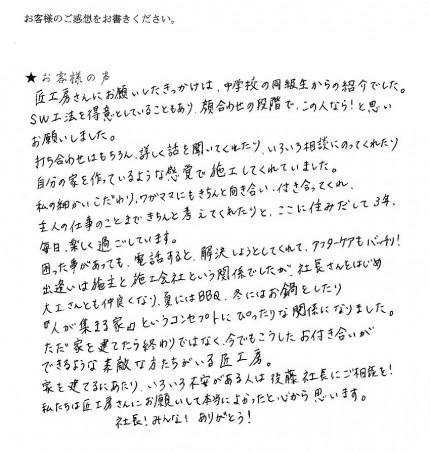 お客様のご感想をお書きください。
★お客様の声
匠工房さんにお願いしたきっかけは、中学校の同級生からの紹介でした。
SW工法を得意としていることもあり、顔合わせの段階で、この人なら!と思い
お願いしました。
打ち合わせはもちろん、詳しく話を聞いてくれたり、いろいろ相談にのってくれたり
自分の家を作っているような感覚で施工してくれていました。
私の細かいこだわり、ワガママにもきちんと向き合い、付き合ってくれ、
主人の仕事のことまできちんと考えてくれたりと、ここに住みだして3年、
毎日、楽しく過ごしています。
困った事があっても、電話すると、解決しようとしてくれて、アフターケアもバッチリ!
出逢いは施主と施工会社という関係でしたが、社長さんをはじめ
大工さんとも仲良くなり、夏にはBBQ、冬にはお鍋をしたり
『人が集まる家』というコンセプトにぴったりな関係になりました。
ただ家を建てたら終わりではなく、今でもこうしたお付き合いが
できるような素敵な方たちがいる匠工房。
家を建てるにあたり、いろいろ不安がある人は後藤社長にご相談を!
私たちは匠工房さんにお願いして本当によかったと心から思います。
社長!みんな!ありがとう!